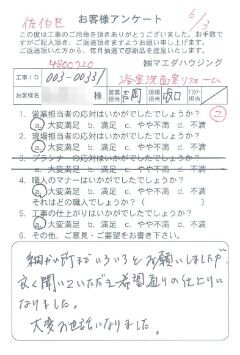 佐伯区
お客様アンケート
6/3
この度は工事のご用命を頂きありがとうございました。お手数で
すがご記入頂き、ご返送頂きますようお願い申し上げます。
ご返送頂いた方から、毎月抽選で感謝品を進呈しております。
4800720
㈱マエダハウジング
工事ID 003-00331 浴室洗面室リフォーム
お客様名 様 営業担当 現場担当 坂口
1. 営業担当者の応対はいかがでしたでしょうか？
a. 大変満足 b. 満足 c. やや不満 d. 不満
2. 現場担当者の応対はいかがでしたでしょうか？
a. 大変満足 b. 満足 c. やや不満 d. 不満
3. プランナーの応対はいかがでしたでしょうか？
a. 大変満足 b. 満足 c. やや不満 d. 不満
4. 職人のマナーはいかがでしたでしょうか？
a. 大変満足 b. 満足 c. やや不満 d. 不満
それはどの職人でしょうか？（ ）
5. 工事の仕上がりはいかがでしたでしょうか？
a. 大変満足 b. 満足 c. やや不満 d. 不満
6. その他、ご意見・ご要望をお書き下さい。
細かい所までいろいろとお願いしましたが、
良く聞いていただき希望通りの仕上りに
なりました。
大変お世話になりました。